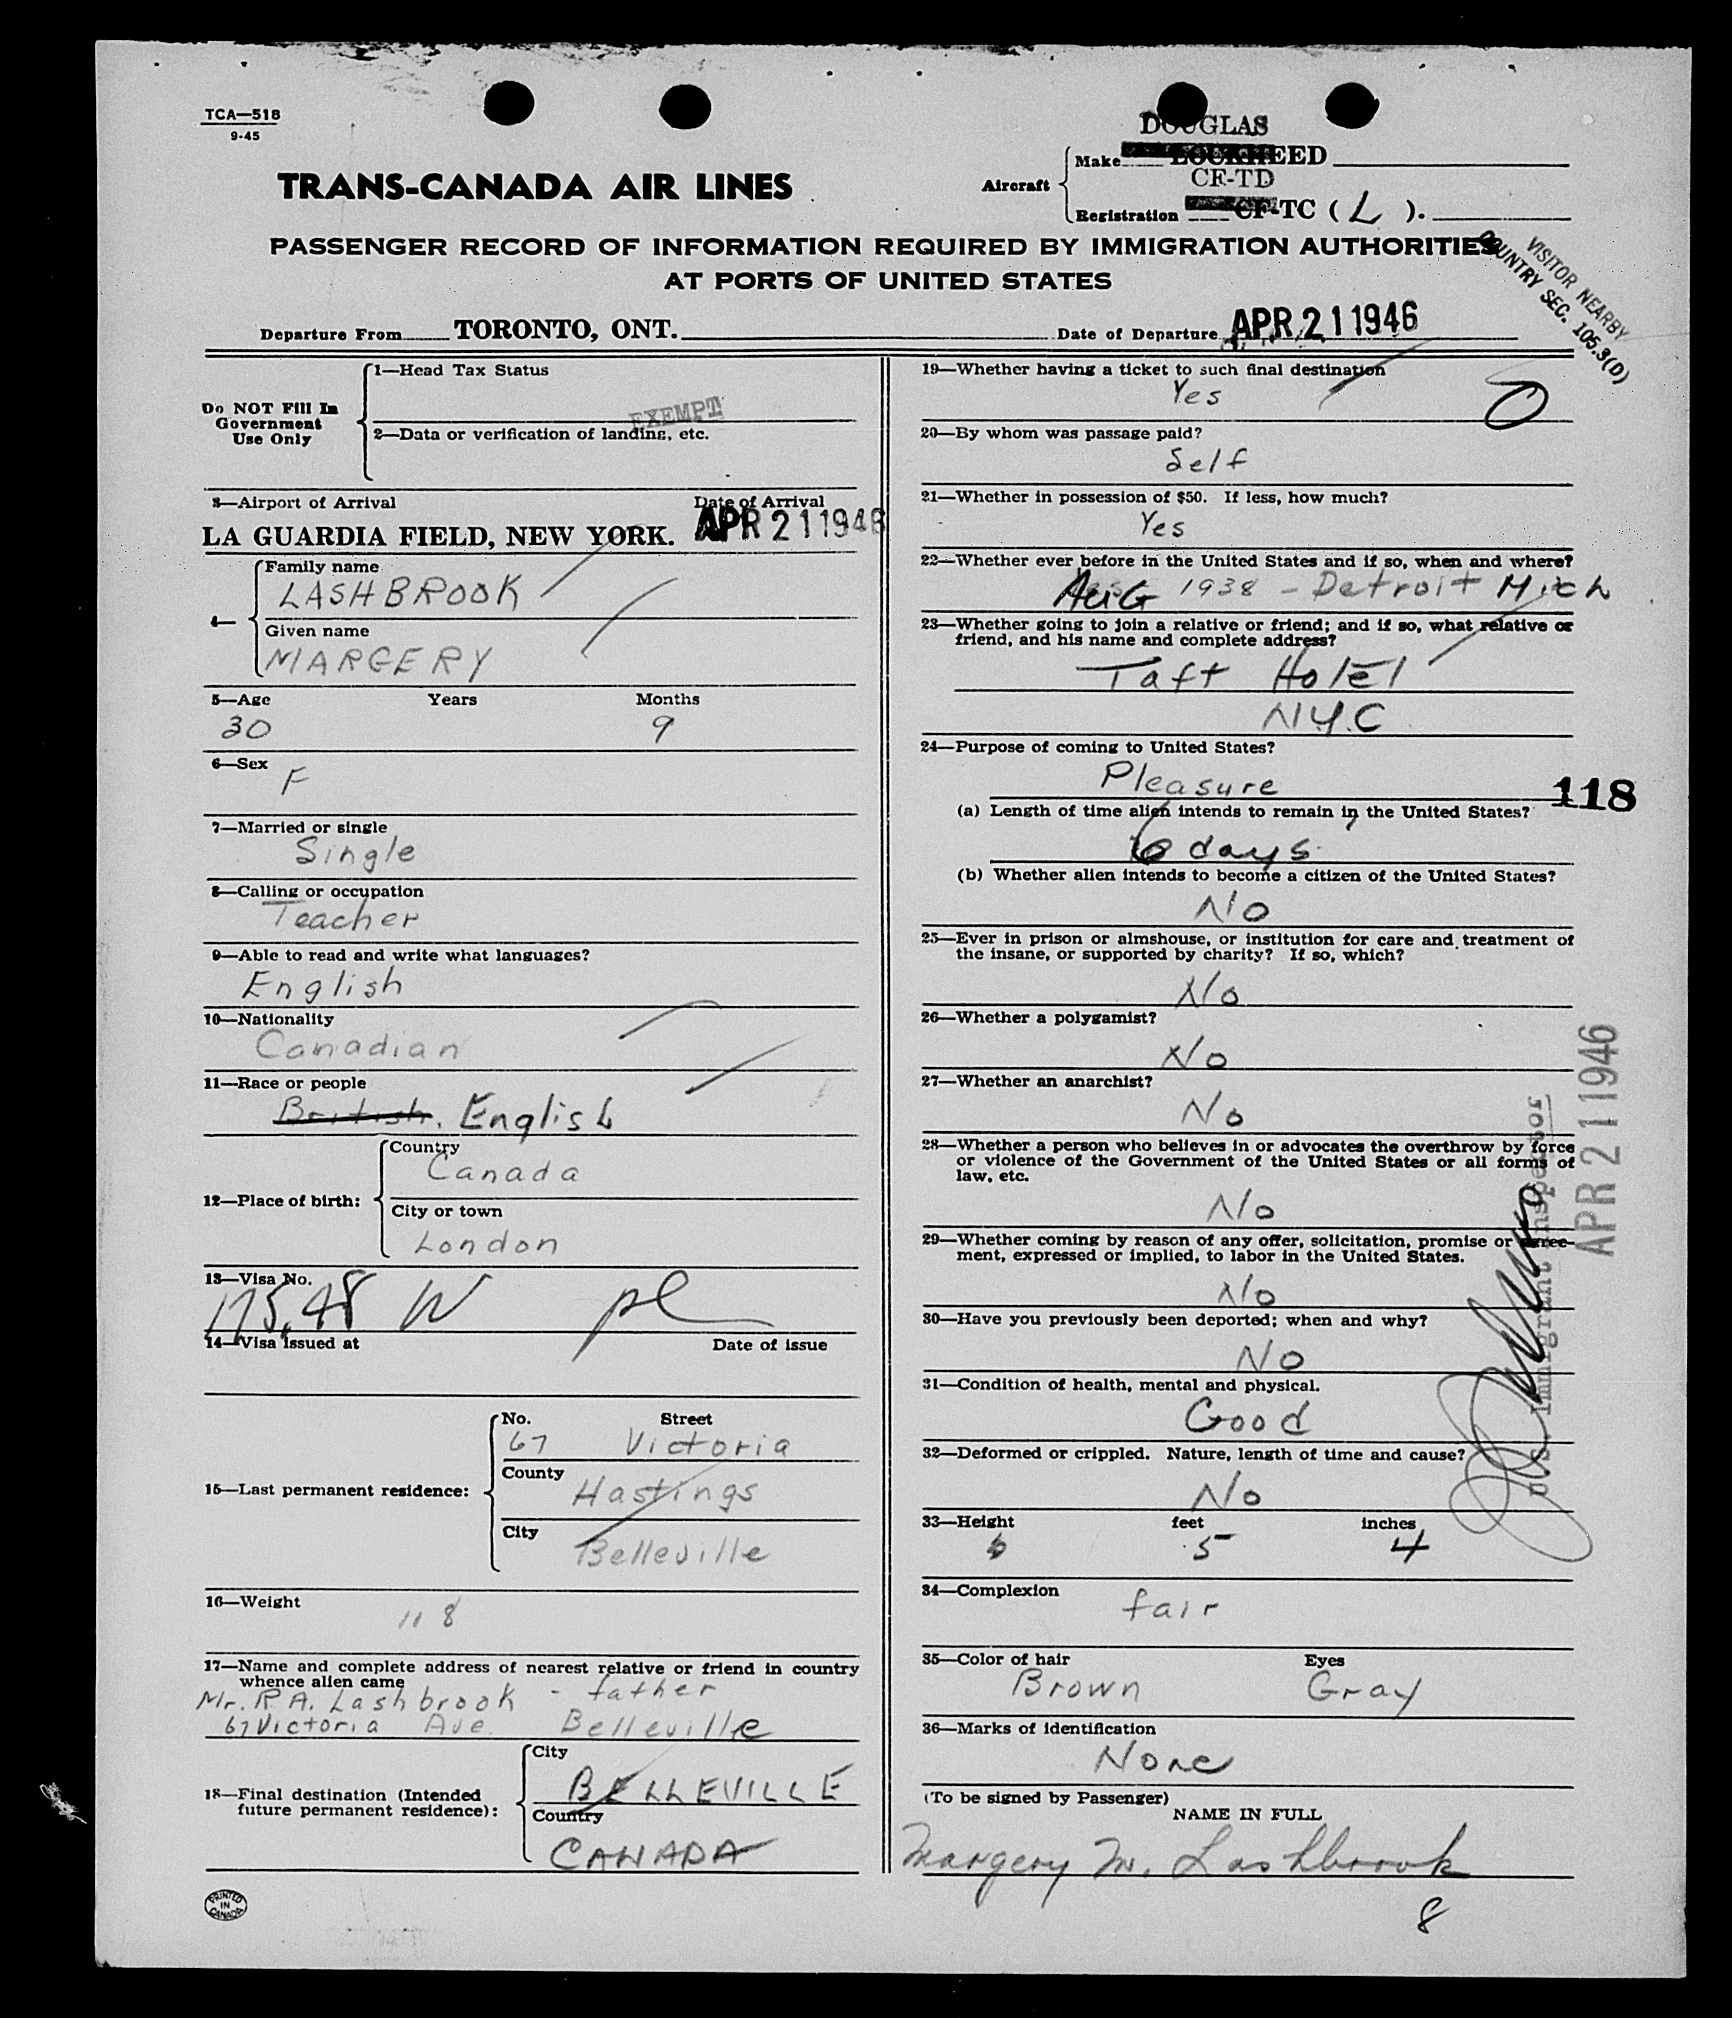 TCA—518
9-45
DOUGLAS
TRANS-CANADA AIR LINES
Aircraft
Make LOCKHEED
CF-TD
Registration CF-TC ( L ).
PASSENGER RECORD OF INFORMATION REQUIRED BY IMMIGRATION AUTHORITIES
AT PORTS OF UNITED STATES
VISITOR NEARBY
COUNTRY SEC. 105.3(D)
Departure From TORONTO, ONT. Date of Departure APR 21 1946
Do NOT Fill In
Government
Use Only
1—Head Tax Status
EXEMPT
2—Data or verification of landing, etc.
3—Airport of Arrival Date of Arrival
LA GUARDIA FIELD, NEW YORK. APR 21 1946
4—
Family name
LASHBROOK
Given name
MARGERY
5—Age Years Months
30 9
6—Sex
F
7—Married or single
Single
8—Calling or occupation
Teacher
9—Able to read and write what languages?
English
10—Nationality
Canadian
11—Race or people
British. English
12—Place of birth:
Country
Canada
City or town
London
13—Visa No.
175,48 W
14—Visa issued at Date of issue
15—Last permanent residence:
No. Street
67 Victoria
County
Hastings
City
Belleville
16—Weight
118
17—Name and complete address of nearest relative or friend in country
whence alien came
Mr. R.A. Lashbrook - father
67 Victoria Ave. Belleville
18—Final destination (Intended
future permanent residence):
City
BELLEVILLE
Country
CANADA
PRINTED
IN
CANADA
19—Whether having a ticket to such final destination
Yes
20—By whom was passage paid?
Self
21—Whether in possession of $50. If less, how much?
Yes
22—Whether ever before in the United States and if so, when and where?
AUG 1938 - Detroit Mich
23—Whether going to join a relative or friend; and if so, what relative or
friend, and his name and complete address?
Taft Hotel
N.Y.C
24—Purpose of coming to United States?
Pleasure
118
(a) Length of time alien intends to remain in the United States?
6 days
(b) Whether alien intends to become a citizen of the United States?
No
25—Ever in prison or almshouse, or institution for care and treatment of
the insane, or supported by charity? If so, which?
No
26—Whether a polygamist?
No
27—Whether an anarchist?
No
28—Whether a person who believes in or advocates the overthrow by force
or violence of the Government of the United States or all forms of
law, etc.
No
29—Whether coming by reason of any offer, solicitation, promise or agree-
ment, expressed or implied, to labor in the United States.
No
30—Have you previously been deported; when and why?
No
31—Condition of health, mental and physical.
Good
32—Deformed or crippled. Nature, length of time and cause?
No
33—Height feet inches
5 4
34—Complexion
fair
35—Color of hair Eyes
Brown Gray
36—Marks of identification
None
(To be signed by Passenger)
NAME IN FULL
Margery M. Lashbrook
8
U.S. Immigrant Inspector
APR 21 1946